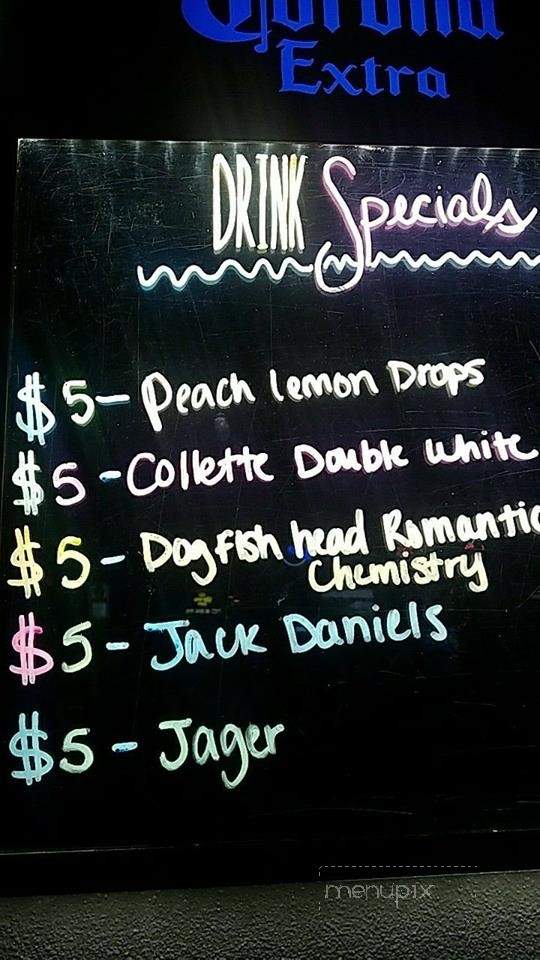 Corona
Extra
DRINK Specials
$5- Peach lemon Drops
$5 -Collette Double White
$5- Dogfish head Romantic
Chemistry
$5- Jack Daniels
$5 - Jager
menupix